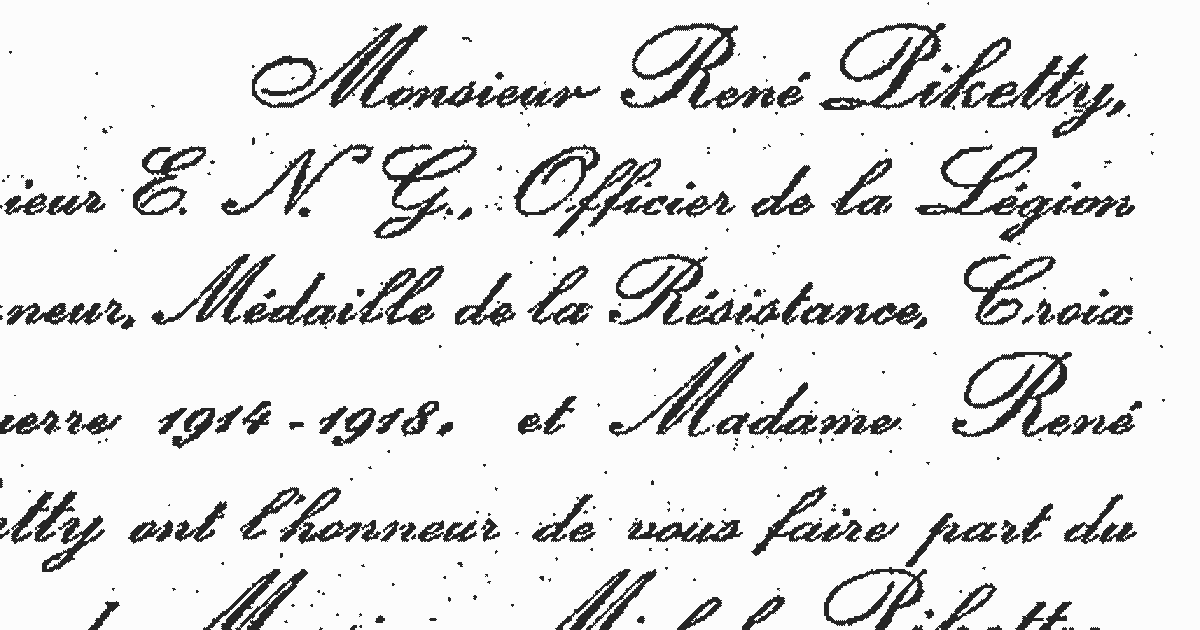 Monsieur René Piketty,
ieur E. N. G., Officier de la Légion
neur, Médaille de la Résistance, Croix
uerre 1914-1918, et Madame René
etty ont l'honneur de vous faire part du
Piketty